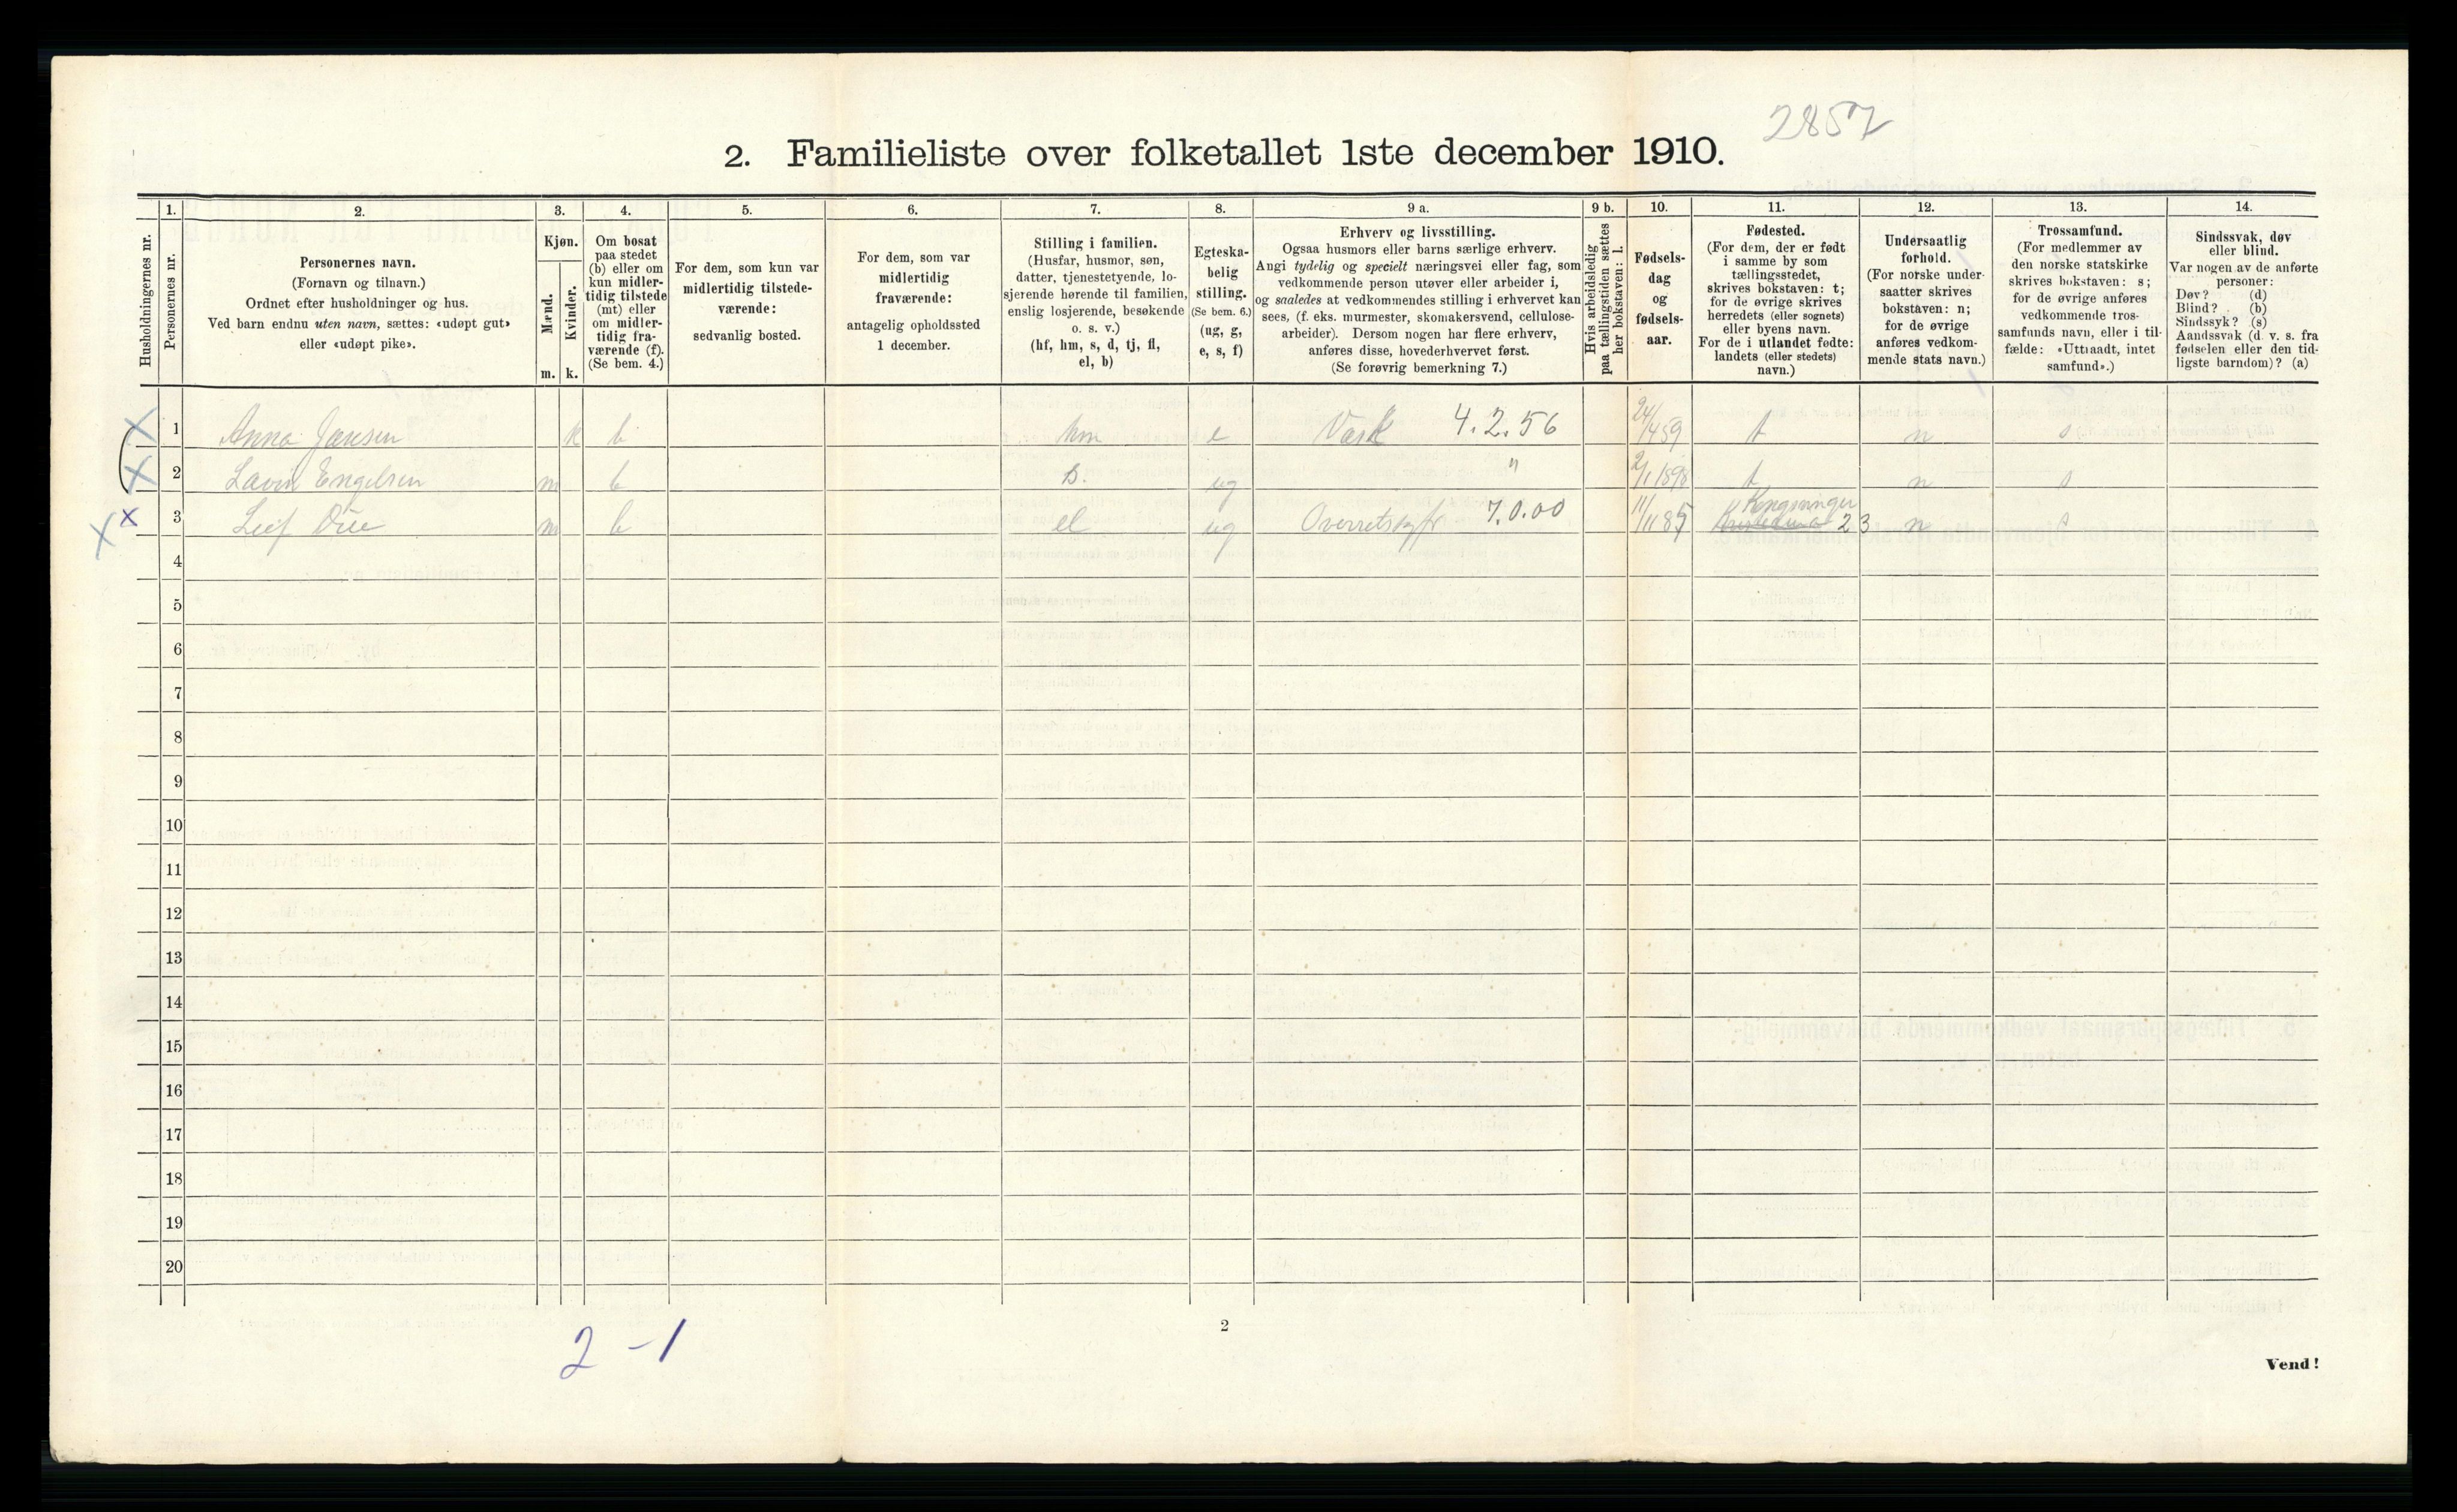 2857
2. Familieliste over folketallet 1ste december 1910.
Husholdningernes nr.
1.
Personernes nr.
2.
Personernes navn.
(Fornavn og tilnavn.)
Ordnet efter husholdninger og hus.
Ved barn endnu uten navn, sættes: «udøpt gut»
eller «udøpt pike».
3.
Kjøn.
Mænd.
Kvinder.
m. k.
4.
Om bosat
paa stedet
(b) eller om
kun midler-
tidig tilstede
(mt) eller
om midler-
tidig fra-
værende (f).
(Se bem. 4.)
5.
For dem, som kun var
midlertidig tilstede-
værende:
sedvanlig bosted.
6.
For dem, som var
midlertidig
fraværende:
antagelig opholdssted
1 december.
7.
Stilling i familien.
(Husfar, husmor, søn,
datter, tjenestetyende, lo-
sjerende hørende til familien,
enslig losjerende, besøkende
o. s. v.)
(hf, hm, s, d, tj, fl,
el, b)
8.
Egteska-
belig
stilling.
(Se bem. 6.)
(ug, g,
e, s, f)
9 a.
Erhverv og livsstilling.
Ogsaa husmors eller barns særlige erhverv.
Angi tydelig og specielt næringsvei eller fag, som
vedkommende person utøver eller arbeider i,
og saaledes at vedkommendes stilling i erhvervet kan
sees, (f. eks. murmester, skomakersvend, cellulose-
arbeider). Dersom nogen har flere erhverv,
anføres disse, hovederhvervet først.
(Se forøvrig bemerkning 7.)
9 b.
Hvis arbeidsledig
paa tællingstiden sættes
her bokstaven: l.
10.
Fødsels-
dag
og
fødsels-
aar.
11.
Fødested.
(For dem, der er født
i samme by som
tællingsstedet,
skrives bokstaven: t;
for de øvrige skrives
herredets (eller sognets)
eller byens navn.
For de i utlandet fødte:
landets (eller stedets)
navn.)
12.
Undersaatlig
forhold.
(For norske under-
saatter skrives
bokstaven: n;
for de øvrige
anføres vedkom-
mende stats navn.)
13.
Trossamfund.
(For medlemmer av
den norske statskirke
skrives bokstaven: s;
for de øvrige anføres
vedkommende tros-
samfunds navn, eller i til-
fælde: «Uttraadt, intet
samfund».)
14.
Sindssvak, døv
eller blind.
Var nogen av de anførte
personer:
Døv? (d)
Blind? (b)
Sindssyk? (s)
Aandssvak (d. v. s. fra
fødselen eller den tid-
ligste barndom)? (a)
X 1 Anna Jansen k b hm e Vask 4.2.56 24/4 59 t n s
X 2 Lavin Engelsen m b s. ug " 2/1 1898 t n s
X x 3 Leif Due m b el ug Overretssagfr 7.0.00 11/11 85 Kongsvinger 23 n s
4
5
6
7
8
9
10
11
12
13
14
15
16
17
18
19
20
2 - 1
2
Vend!